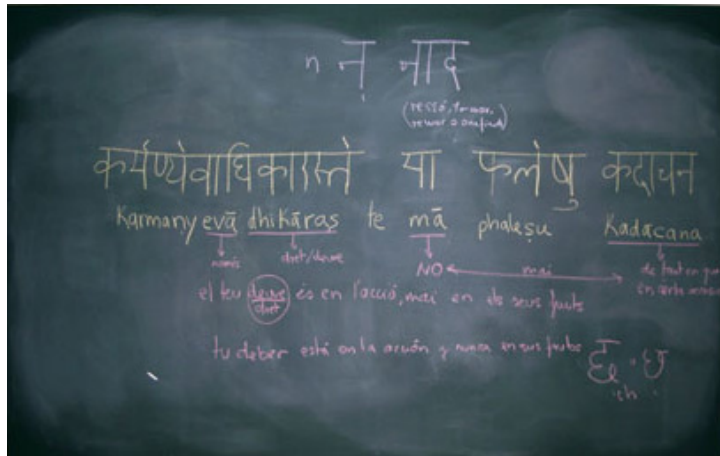 n न् नाद
(ressò, tremor,
कर्मण्येवाधिकारस्ते मा फलेषु कदाचन
Karmany evā dhikāraṣ te mā phaleṣu Kadācana
només dret/deure NO mai de tant en
el teu deure dret és en l'acció, mai en els seus fruits
tu deber está en la acción y nunca en sus frutos
ch